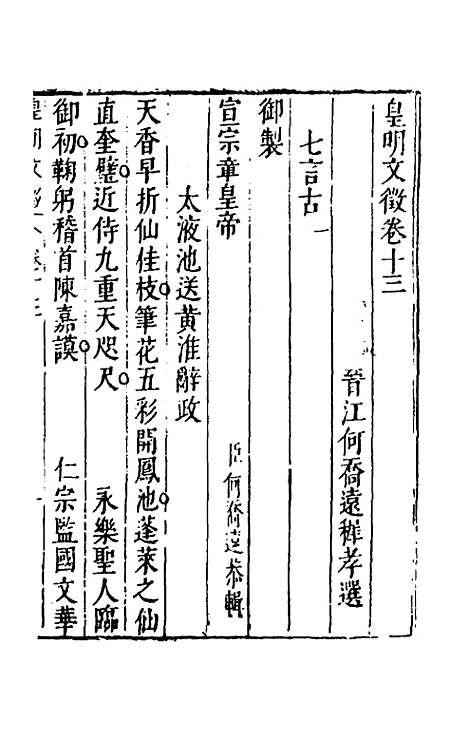 皇明文徵卷十三
晉江何喬遠穉孝選
七言古一
御製
宣宗章皇帝
臣何喬遠恭輯
太液池送黃淮辭政
天香早折仙佳枝筆花五彩開鳳池蓬萊之仙
直奎璧近侍九重天咫尺 永樂聖人臨
御初鞠躬稽首陳嘉謨 仁宗監國文華
皇明文徵 卷十三 一